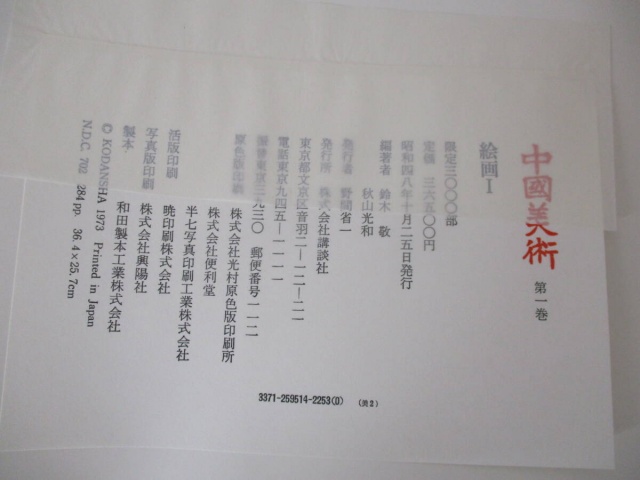 中國美術
第一巻
絵画Ⅰ
限定三〇〇〇部
定価 三六五〇〇円
昭和四八年十月二五日発行
編著者 鈴木 敬
秋山光和
発行者 野間省一
発行所 株式会社講談社
東京都文京区音羽二―一二―二一
電話東京九四五―一一一一
振替東京三九三〇 郵便番号一一二
原色版印刷 株式会社光村原色版印刷所
株式会社便利堂
半七写真印刷工業株式会社
活版印刷 暁印刷株式会社
写真版印刷 株式会社興陽社
製本 和田製本工業株式会社
© KODANSHA 1973 Printed in Japan
N.D.C. 702 284 pp. 36.4×25.7cm
3371-259514-2253(0) (美2)